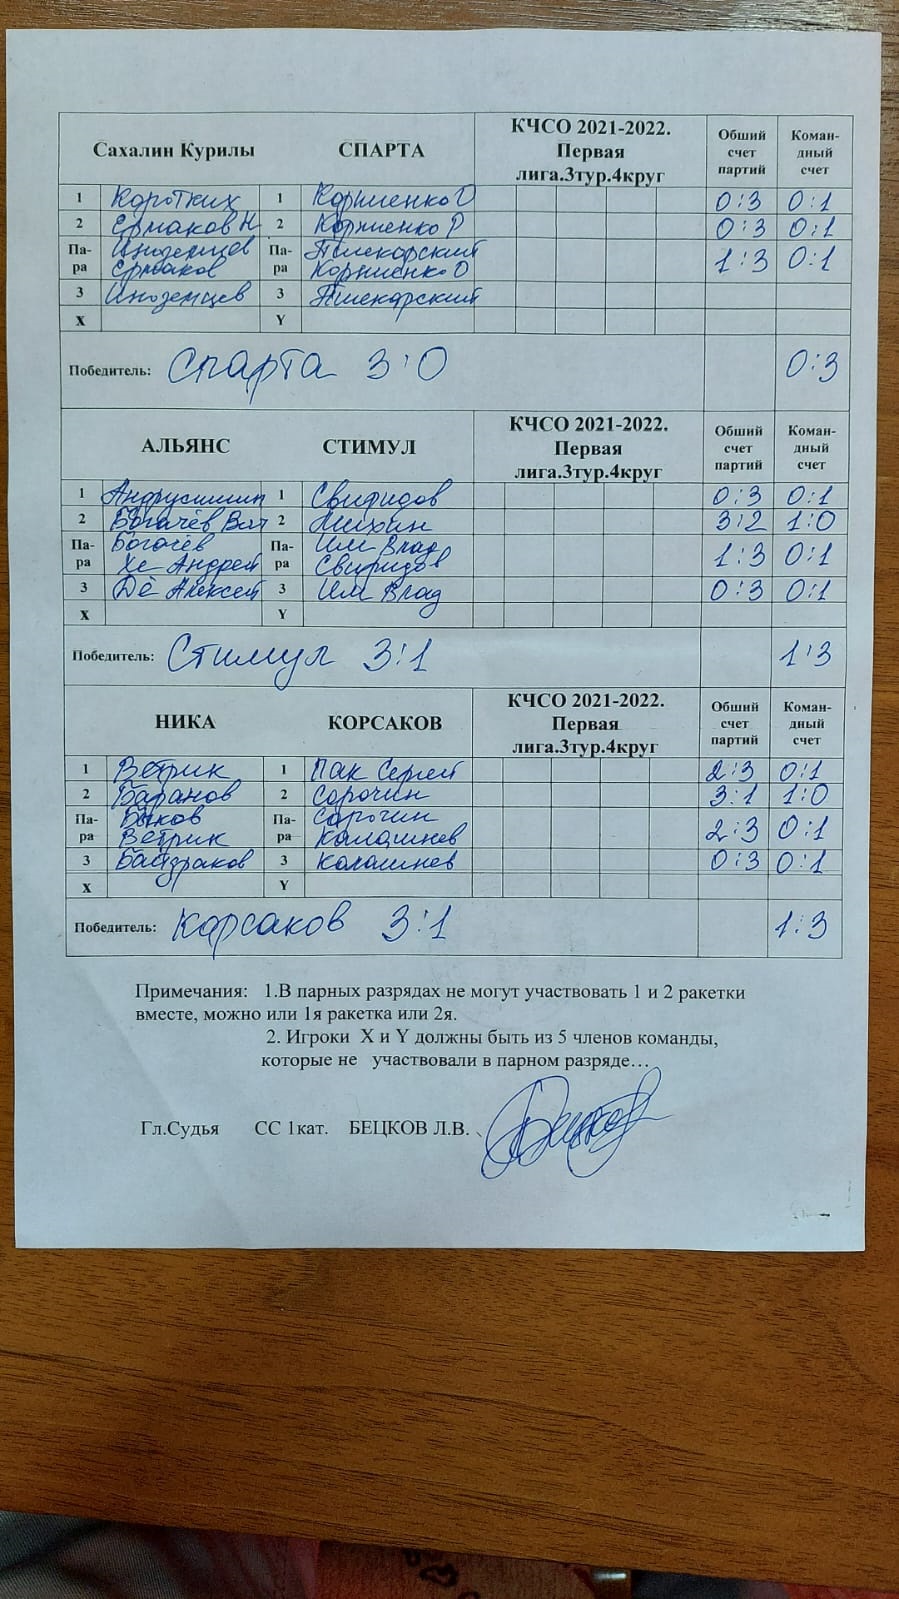 Сахалин Курилы СПАРТА КЧСО 2021-2022. Первая лига.3тур.4круг Обший счет партий Коман-дный счет
1 Коротких 1 Корниенко О 0:3 0:1
2 Ермаков Н 2 Корниенко Р 0:3 0:1
Па-ра Иноземцев Ермаков Па-ра Пшекарский Корниенко О 1:3 0:1
3 Иноземцев 3 Пшекарский
X Y
Победитель: Спарта 3:0 0:3
АЛЬЯНС СТИМУЛ КЧСО 2021-2022. Первая лига.3тур.4круг Обший счет партий Коман-дный счет
1 1 Свиридов 0:3 0:1
2 Богачёв Вит 2 3:2 1:0
Па-ра Богачёв Хе Андрей Па-ра Им Влад Свиридов 1:3 0:1
3 Дё Алексей 3 Им Влад 0:3 0:1
X Y
Победитель: Стимул 3:1 1:3
НИКА КОРСАКОВ КЧСО 2021-2022. Первая лига.3тур.4круг Обший счет партий Коман-дный счет
1 Ветрик 1 Пак Сергей 2:3 0:1
2 Баранов 2 Сорочин 3:1 1:0
Па-ра Быков Ветрик Па-ра Сорочин Калашнев 2:3 0:1
3 3 Калашнев 0:3 0:1
X Y
Победитель: Корсаков 3:1 1:3
Примечания: 1.В парных разрядах не могут участвовать 1 и 2 ракетки
вместе, можно или 1я ракетка или 2я.
2. Игроки X и Y должны быть из 5 членов команды,
которые не участвовали в парном разряде…
Гл.Судья СС 1кат. БЕЦКОВ Л.В.